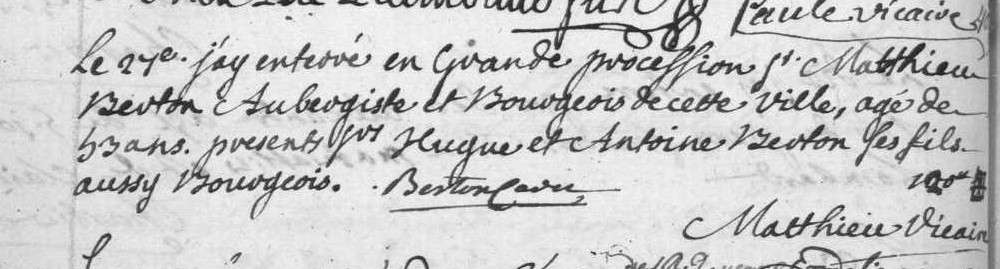 Paule vicaire
Le 27e. j'ay enterré en Grande procession sr. Matthieu
Berton Aubergiste et Bourgeois de cette Ville, agé de
53 ans. presents srs Hugue et Antoine Berton ses fils
aussy Bourgeois. Berton
Matthieu Vicair